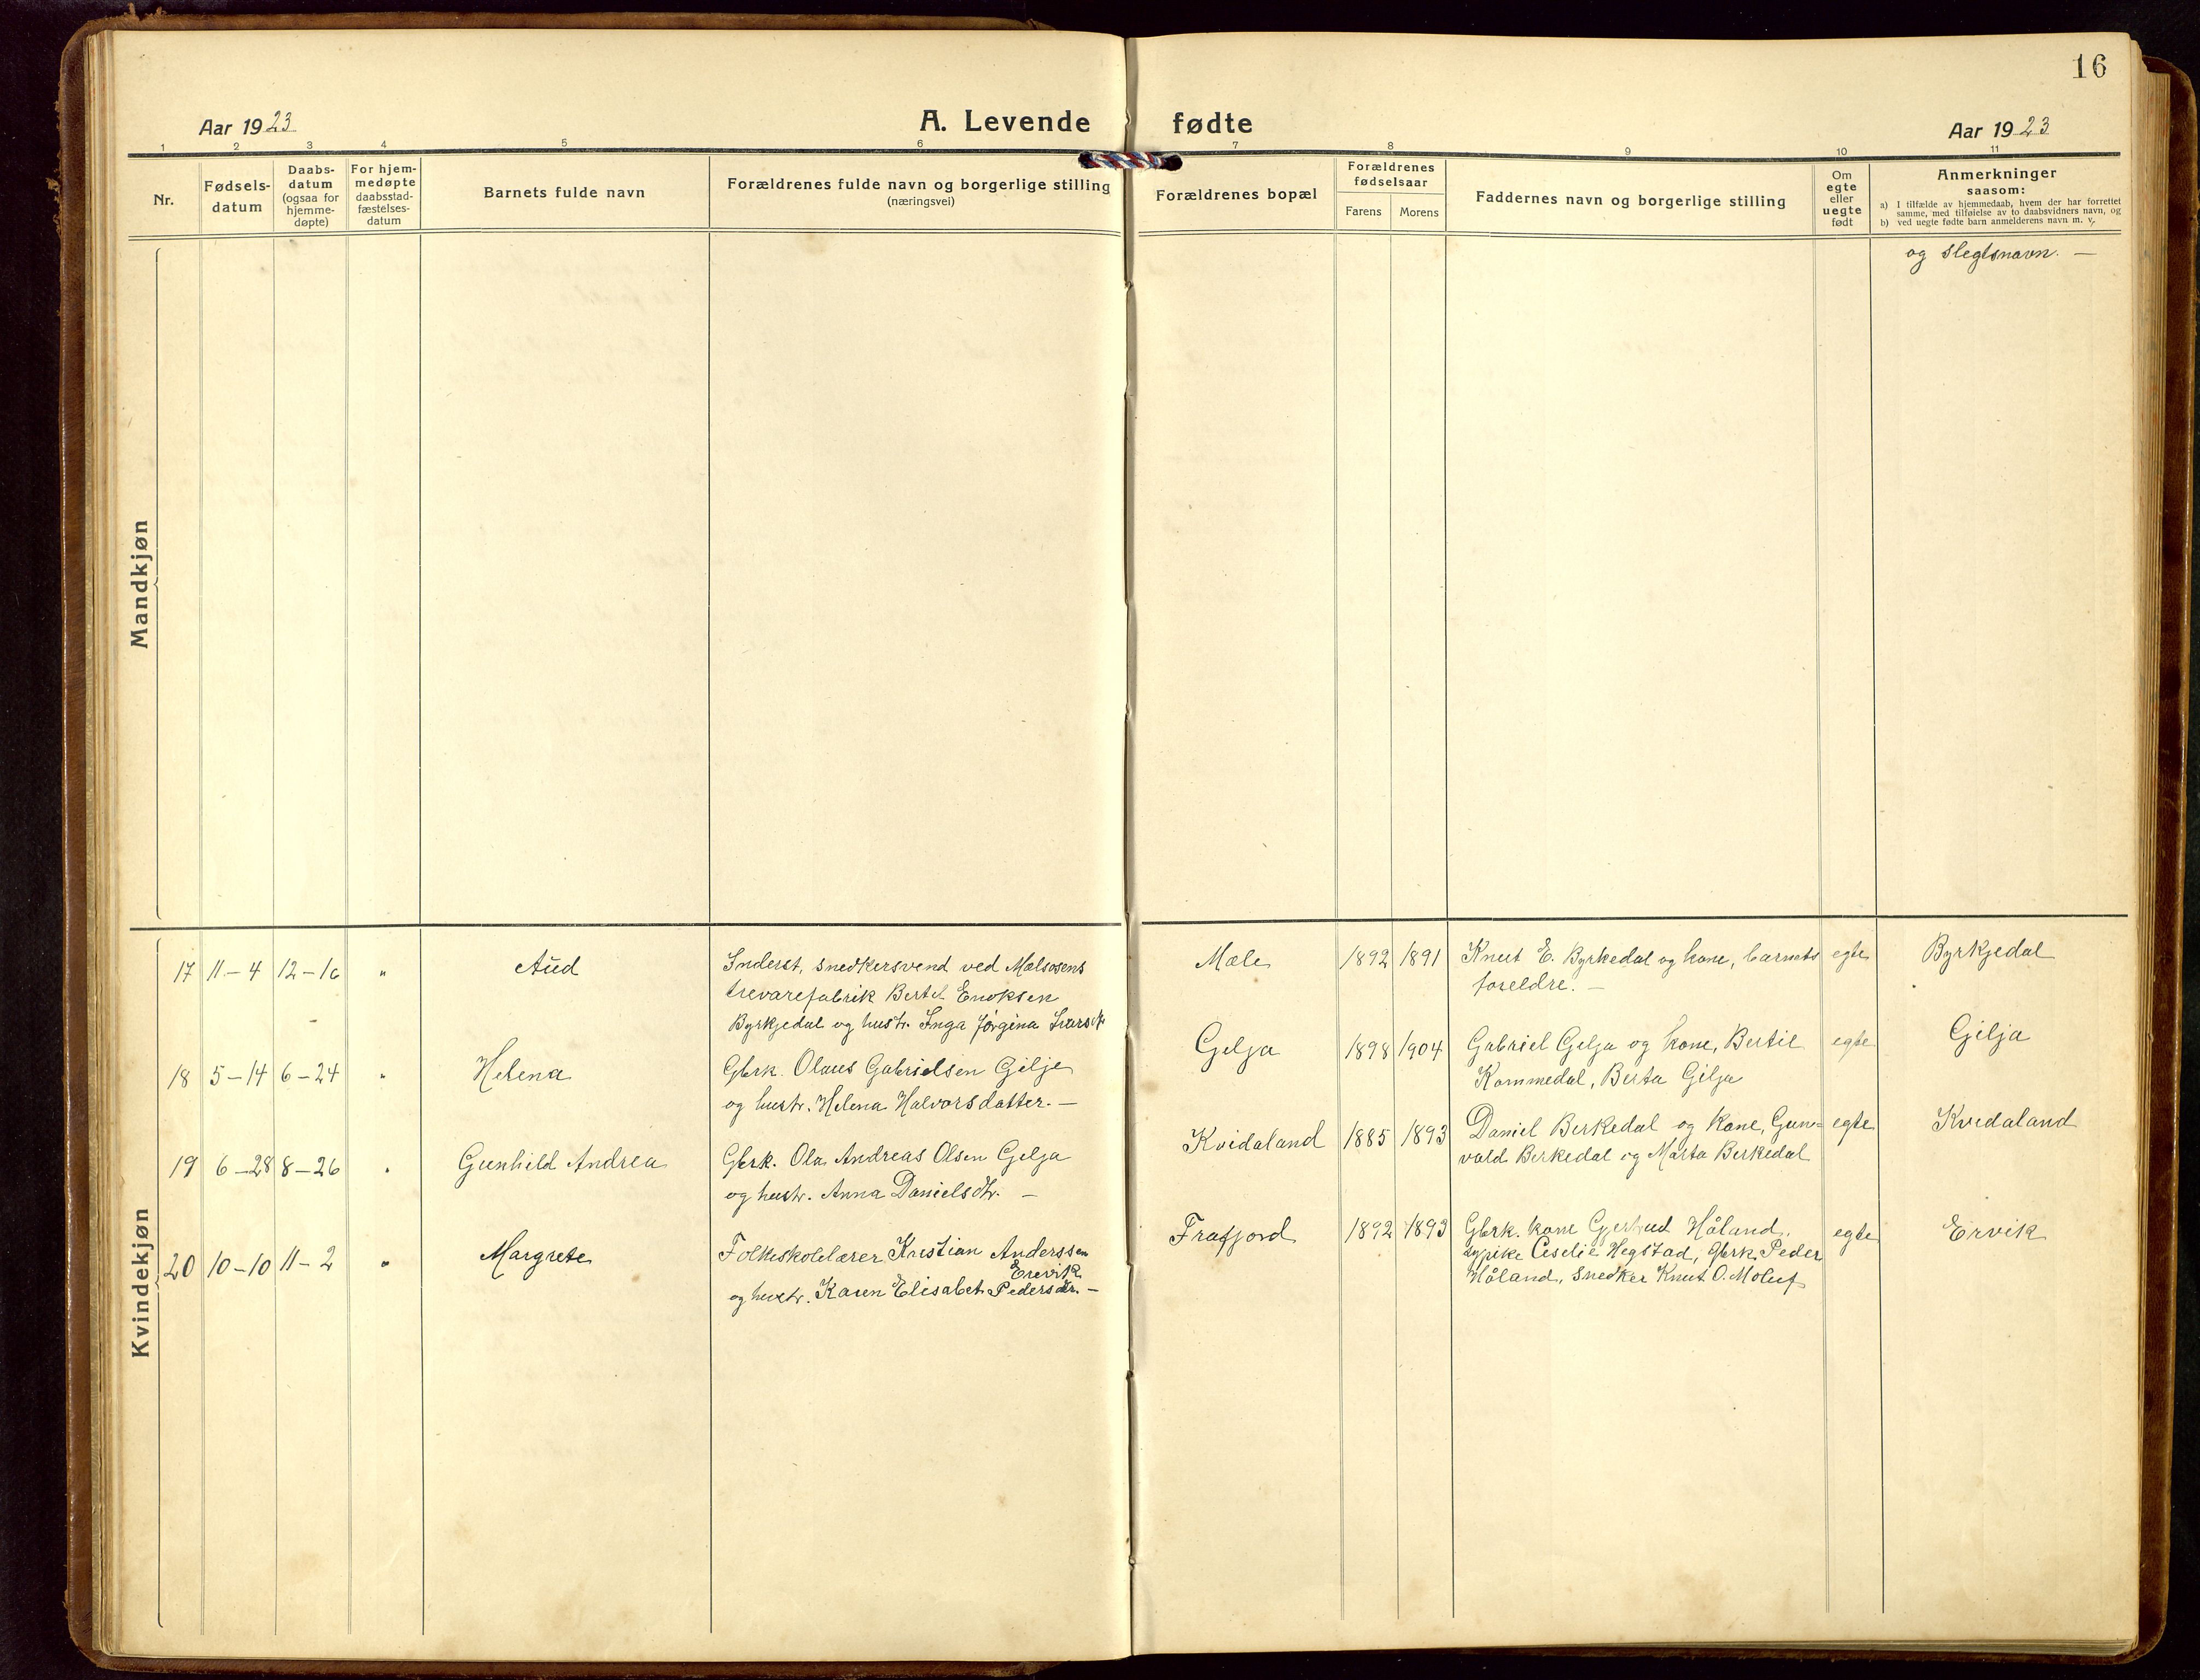 16
Aar 1923
A. Levende fødte
Aar 1923
1 2 3 4 5 6 7 8 9 10 11
Nr.
Fødsels-
datum
Daabs-
datum
(ogsaa for
hjemme-
døpte)
For hjem-
medøpte
daabsstad-
fæstelses-
datum
Barnets fulde navn
Forældrenes fulde navn og borgerlige stilling
(næringsvei)
Forældrenes bopæl
Forældrenes
fødselsaar
Farens Morens
Faddernes navn og borgerlige stilling
Om
egte
eller
uegte
født
Anmerkninger
saasom:
a) I tilfælde av hjemmedaab, hvem der har forrettet
samme, med tilføielse av to daabsvidners navn, og
b) ved uegte fødte barn anmelderens navn m. v.
Mandkjøn
og slegtsnavn. —
Kvindekjøn
17 11–4 12–16 " Aud
Inderst, snedkersvend ved Mælsosens
trevarefabrik Bertel Enoksen
Byrkjedal og hustr. Inga Jørgina
Mæle 1892 1891
Knut E. Byrkedal og kone, barnets
foreldre. —
egte Byrkjedal
18 5–14 6–24 " Helena
Gbrk. Olaus Gabrielsen Gilje
og hustr. Helena Halvorsdatter. —
Gilja 1898 1904
Gabriel Gilja og kone, Bertie
Kommedal, Berta Gilja
egte Gilja
19 6–28 8–26 " Gunhild Andrea
Gbrk. Ola Andreas Olsen Gilja
og hustr. Anna Danielsdtr. —
Kvidaland 1885 1893
Daniel Birkedal og kone, Gun=
vald Birkedal og Marta Birkedal
egte Kvidaland
20 10–10 11–2 " Margrete
Folkeskolelærer Kristian Anderssen
Erevik
og hustr. Karen Elisabet Pedersdtr. —
Frafjord 1892 1893
Gbrk. kone Gjertrud Håland,
sypike Ceselie Hegstad, Gbrk. Peder
Håland, snedker Knut O. Moluf
egte Ervik